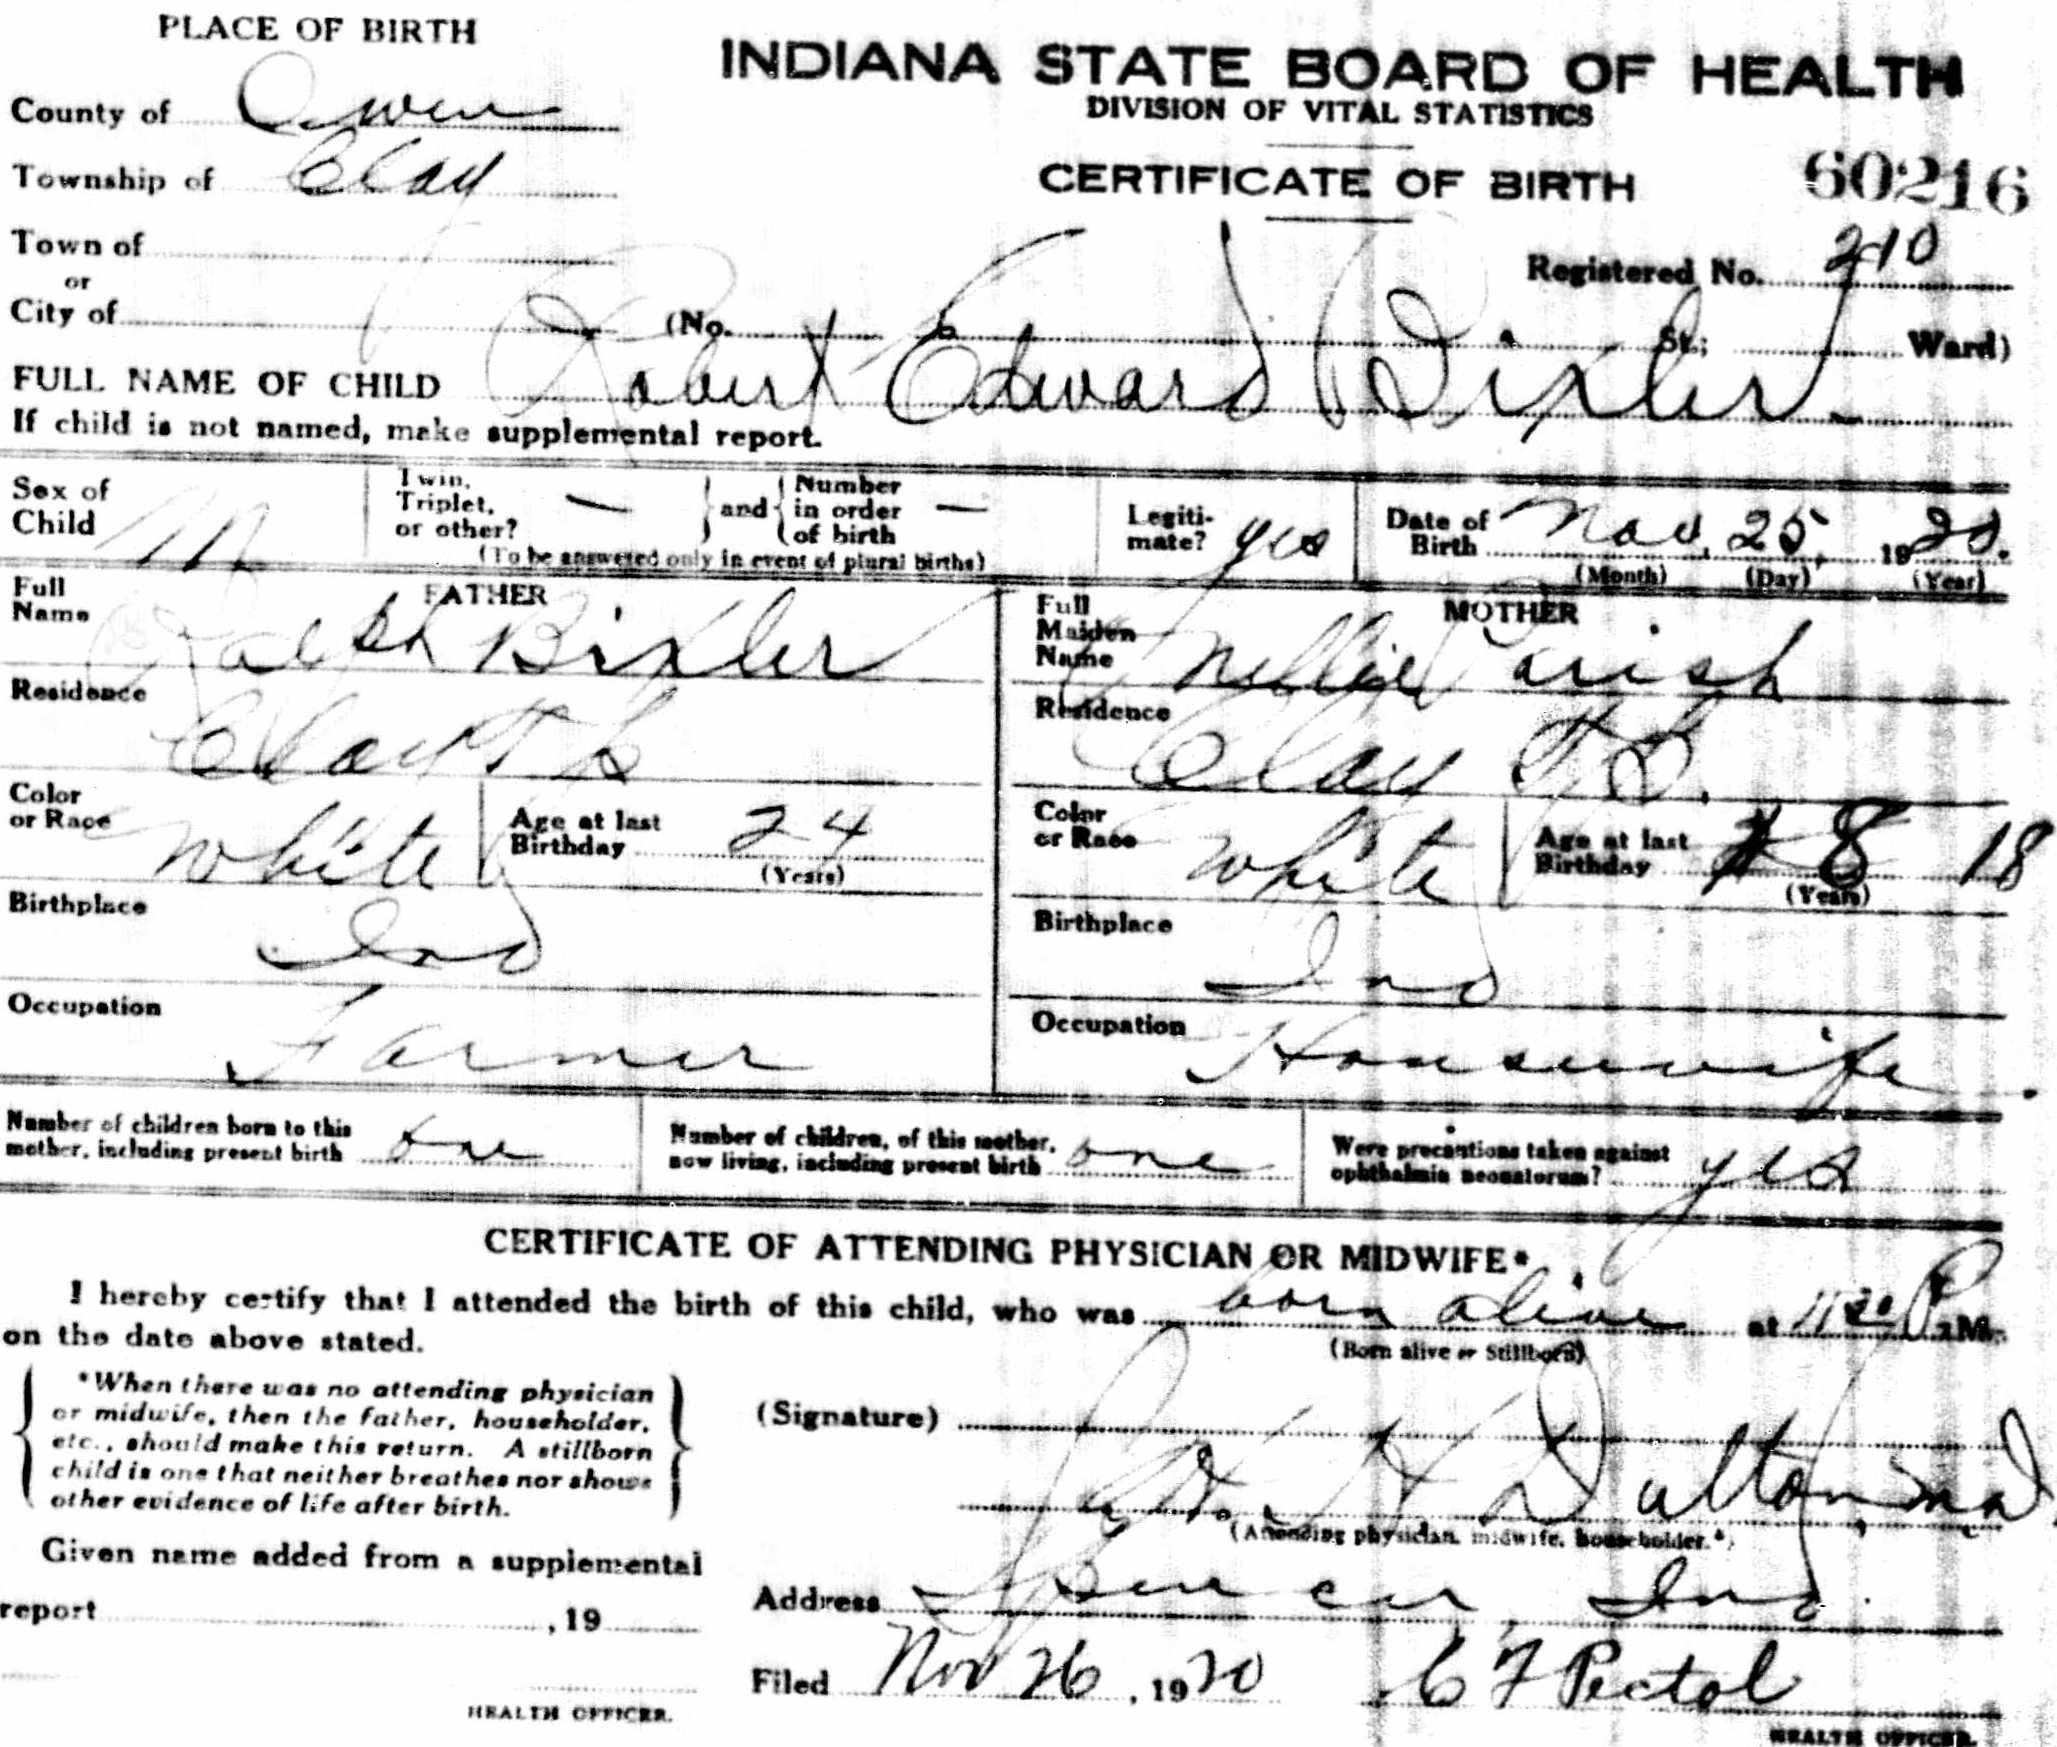 PLACE OF BIRTH
INDIANA STATE BOARD OF HEALTH
DIVISION OF VITAL STATISTICS
County of Owen
Township of Clay
CERTIFICATE OF BIRTH 60216
Town of
or
City of
Registered No. 210
(No. St.; Ward)
FULL NAME OF CHILD Robert Edward Bixler
If child is not named, make supplemental report.
Sex of Child M
Twin, Triplet, or other? — and Number in order of birth —
(To be answered only in event of plural births)
Legitimate? yes
Date of Birth Nov. 25, 1920.
(Month) (Day) (Year)
FATHER
Full Name Ralph Bixler
Residence Clay
Color or Race White
Age at last Birthday 24
(Years)
Birthplace Ind
Occupation Farmer
MOTHER
Full Maiden Name Nellie Parish
Residence Clay
Color or Race White
Age at last Birthday 18
(Years)
Birthplace Ind
Occupation Housewife.
Number of children born to this mother, including present birth one
Number of children, of this mother, now living, including present birth one
Were precautions taken against ophthalmia neonatorum? yes
CERTIFICATE OF ATTENDING PHYSICIAN OR MIDWIFE*
I hereby certify that I attended the birth of this child, who was born alive at P. M.
(Born alive or Stillborn)
on the date above stated.
*When there was no attending physician
or midwife, then the father, householder,
etc., should make this return. A stillborn
child is one that neither breathes nor shows
other evidence of life after birth.
(Signature)
Dalton, M.D.
(Attending physician, midwife, householder.*)
Given name added from a supplemental
report , 19
HEALTH OFFICER.
Address Spencer, Ind.
Filed Nov 26, 1920 C F Pectol
HEALTH OFFICER.